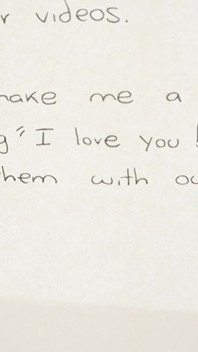 r videos.
make me a
g "I love you !
them with ou